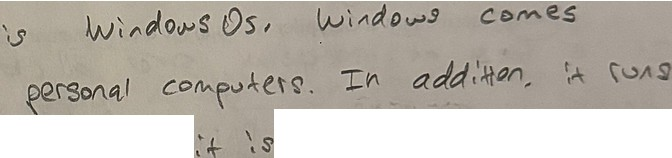 is Windows Os. Windows comes
personal computers. In addition, it runs
it is